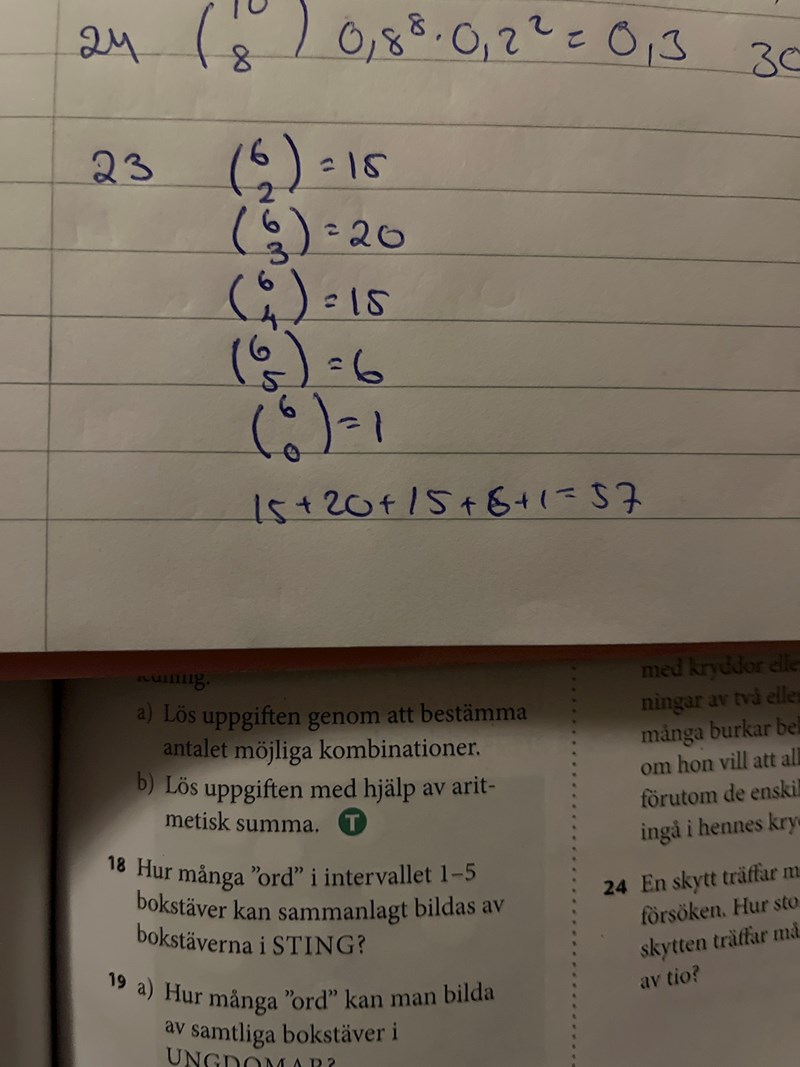 24 (10 8) 0,8⁸ · 0,2² = 0,3 30
23 (6 2) = 15
(6 3) = 20
(6 4) = 15
(6 5) = 6
(6 0) = 1
15+20+15+6+1=57
a) Lös uppgiften genom att bestämma
antalet möjliga kombinationer.
b) Lös uppgiften med hjälp av arit-
metisk summa. T
18 Hur många ”ord” i intervallet 1–5
bokstäver kan sammanlagt bildas av
bokstäverna i STING?
19 a) Hur många ”ord” kan man bilda
av samtliga bokstäver i
UNGDOMAR?
med kryddor elle
ningar av två elle
många burkar be
om hon vill att al
förutom de enski
ingå i hennes kry
24 En skytt träffar m
försöken. Hur sto
skytten träffar må
av tio?